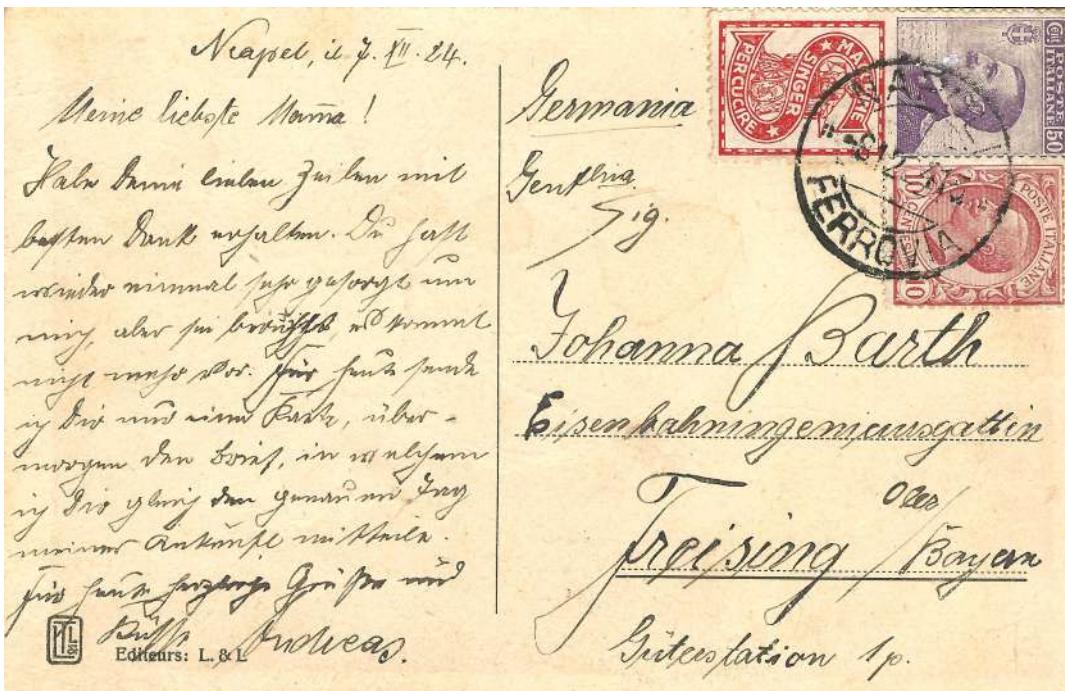 Neapel, d. 7. XII. 24.
Meine liebste Mama!
Habe Deine lieben Zeilen mit
besten Dank erhalten. Du hast
wieder einmal sehr gesorgt um
mich, aber sei beruhigt, es kommt
nicht mehr vor. Für heute sende
ich Dir nur eine Karte, über-
morgen den Brief, in welchem
ich Dir gleich den genauen Tag
meiner Ankunft mitteile.
Für heute herzliche Grüße und
Küsse Andreas.
Editeurs: L. & L
Germania
Sig.
Johanna Barth
Eisenbahningenieursgattin
Freising Ober/Bayern
Güterstation 1p.
MACCHINE
SINGER
PER CUCIRE
POSTE ITALIANE
Cent 50
POSTE ITALIANE
10 CENTESIMI 10
FERROVIA